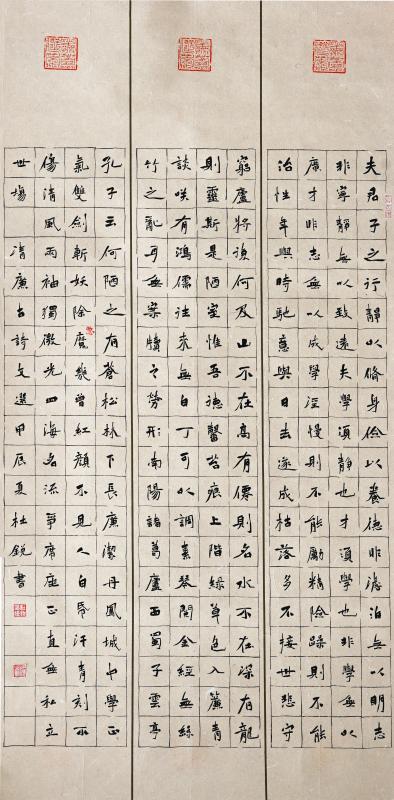 夫君子之行靜以脩身儉以養德非澹泊無以明志
非寧靜無以致遠夫學須靜也才須學也非學無以
廣才非志無以成學淫慢則不能勵精險躁則不能
治性年與時馳意與日去遂成枯落多不接世悲守
窮廬將復何及山不在高有僊則名水不在深有龍
則靈斯是陋室惟吾德馨苔痕上階綠草色入簾青
談咲有鴻儒往來無白丁可以調素琴閱金經無絲
竹之亂耳無案牘之勞形南陽諸葛廬西蜀子雲亭
孔子云何陋之有蒼松林下長廉潔丹鳳城中學正
氣雙劍斬妖除魔幾曾紅顏不見人白昏汗青刻不
傷清風兩袖獨微光四海名流爭席座正直無私立
世塲清廉古詩文選甲辰夏杜銳書